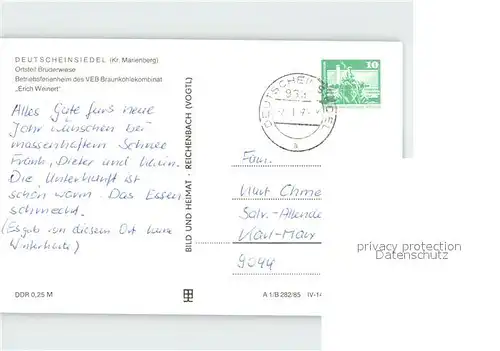 DEUTSCHEINSIEDEL (Kr. Marienberg)
Ortsteil Brüderwiese
Betriebsferienheim des VEB Braunkohlekombinat
„Erich Weinert"
Alles Gute fürs neue
Jahr wünschen bei
massenhaftem Schnee
Frank, Dieter und
Die Unterkunft ist
schön warm. Das Essen
schmeckt.
(Es gab von diesem Ort keine
Winterkarte)
DDR 0,25 M
BILD UND HEIMAT · REICHENBACH (VOGTL)
A 1/B 282/85 IV-14
10
DEUTSCHEINSIEDEL
a
Fam.
Kurt Chme
Salv.-Allende
Karl-Marx
9044
privacy protection
Datenschutz